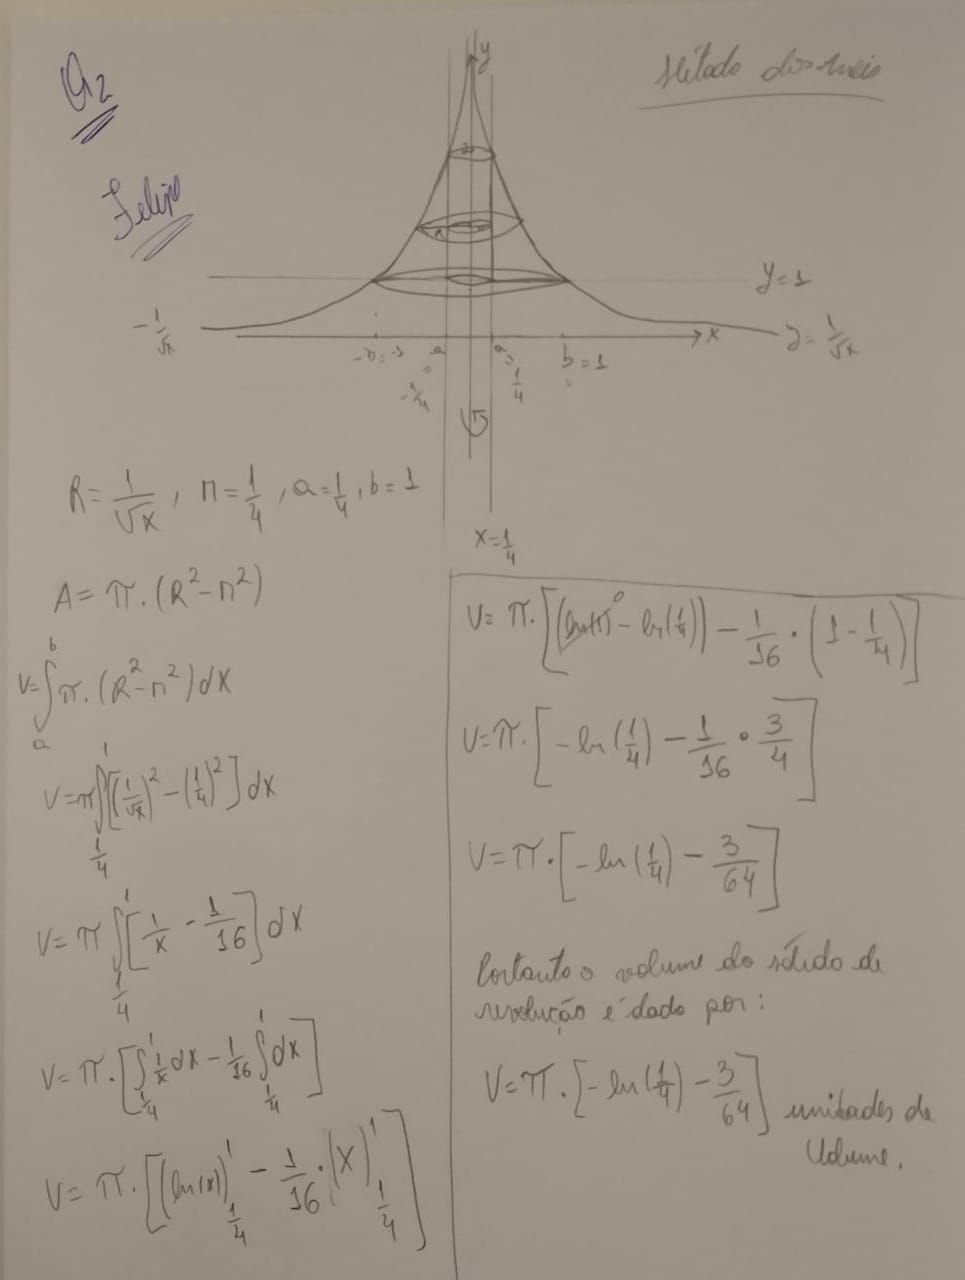 Q2
Felipe
Método dos anéis
y
y=1
-1/√x
x
y=1/√x
-b=-1
-a
-1/4
a
1/4
b=1
x=1/4
R=1/√x, r=1/4, a=1/4, b=1
A= π.(R²-r²)
V=∫ₐᵇ π.(R²-r²)dx
V=π∫_{1/4}^{1}[(1/√x)²-(1/4)²]dx
V=π∫_{1/4}^{1}[1/x-1/16]dx
V=π.[∫_{1/4}^{1} 1/x dx-1/16∫_{1/4}^{1}dx]
V=π.[(ln(x))_{1/4}^{1}-1/16.(x)_{1/4}^{1}]
V=π.[(ln(1)⁰-ln(1/4))-1/16.(1-1/4)]
V=π.[-ln(1/4)-1/16.3/4]
V=π.[-ln(1/4)-3/64]
Portanto o volume do sólido de
revolução é dado por:
V=π.[-ln(1/4)-3/64] unidades de
Volume.